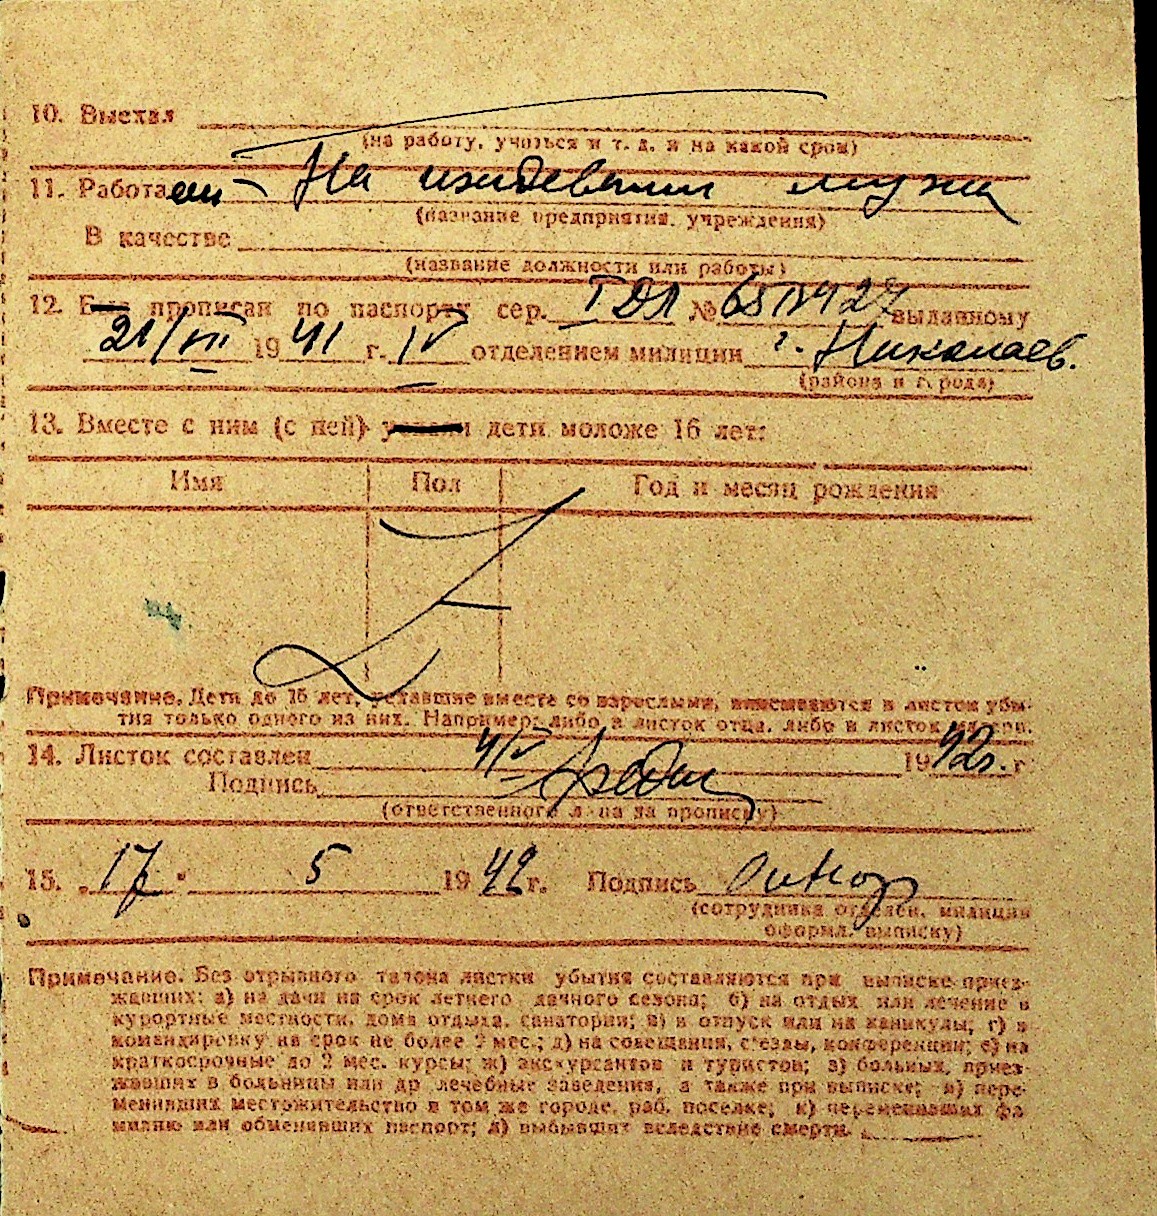 10. Выехал
(на работу, учиться и т. д. и на какой срок)
11. Работает – На иждевении мужа
(название предприятия, учреждения)
В качестве
(название должности или работы)
12. прописан по паспорту сер. № выданному
21/VII 1941 г. IV отделением милиции г. Николаев.
(района и города)
13. Вместе с ним (с ней) дети моложе 16 лет:
Имя Пол Год и месяц рождения
Примечание. Дети до 16 лет, уехавшие вместе со взрослыми, вписываются в листок убы-
тия только одного из них. Например: либо в листок отца, либо в листок матери.
14. Листок составлен 4/V 1942 г.
Подпись
(ответственного лица за прописку)
15. „17" 5 1942 г. Подпись
(сотрудника отделен. милиции
оформл. выписку)
Примечание. Без отрывного талона листки убытия составляются при выписке приез-
жавших: а) на дачи на срок летнего дачного сезона; б) на отдых или лечение в
курортные местности, дома отдыха, санатории; в) в отпуск или на каникулы; г) в
командировку на срок не более 2 мес.; д) на совещания, съезды, конференции; е) на
краткосрочные до 2 мес. курсы; ж) экскурсантов и туристов; з) больных, приез-
жавших в больницы или др лечебные заведения, а также при выписке; и) пере-
менивших местожительство в том же городе, раб. поселке; к) переменивших фа
милию или обменявших паспорт; л) выбывших вследствие смерти.